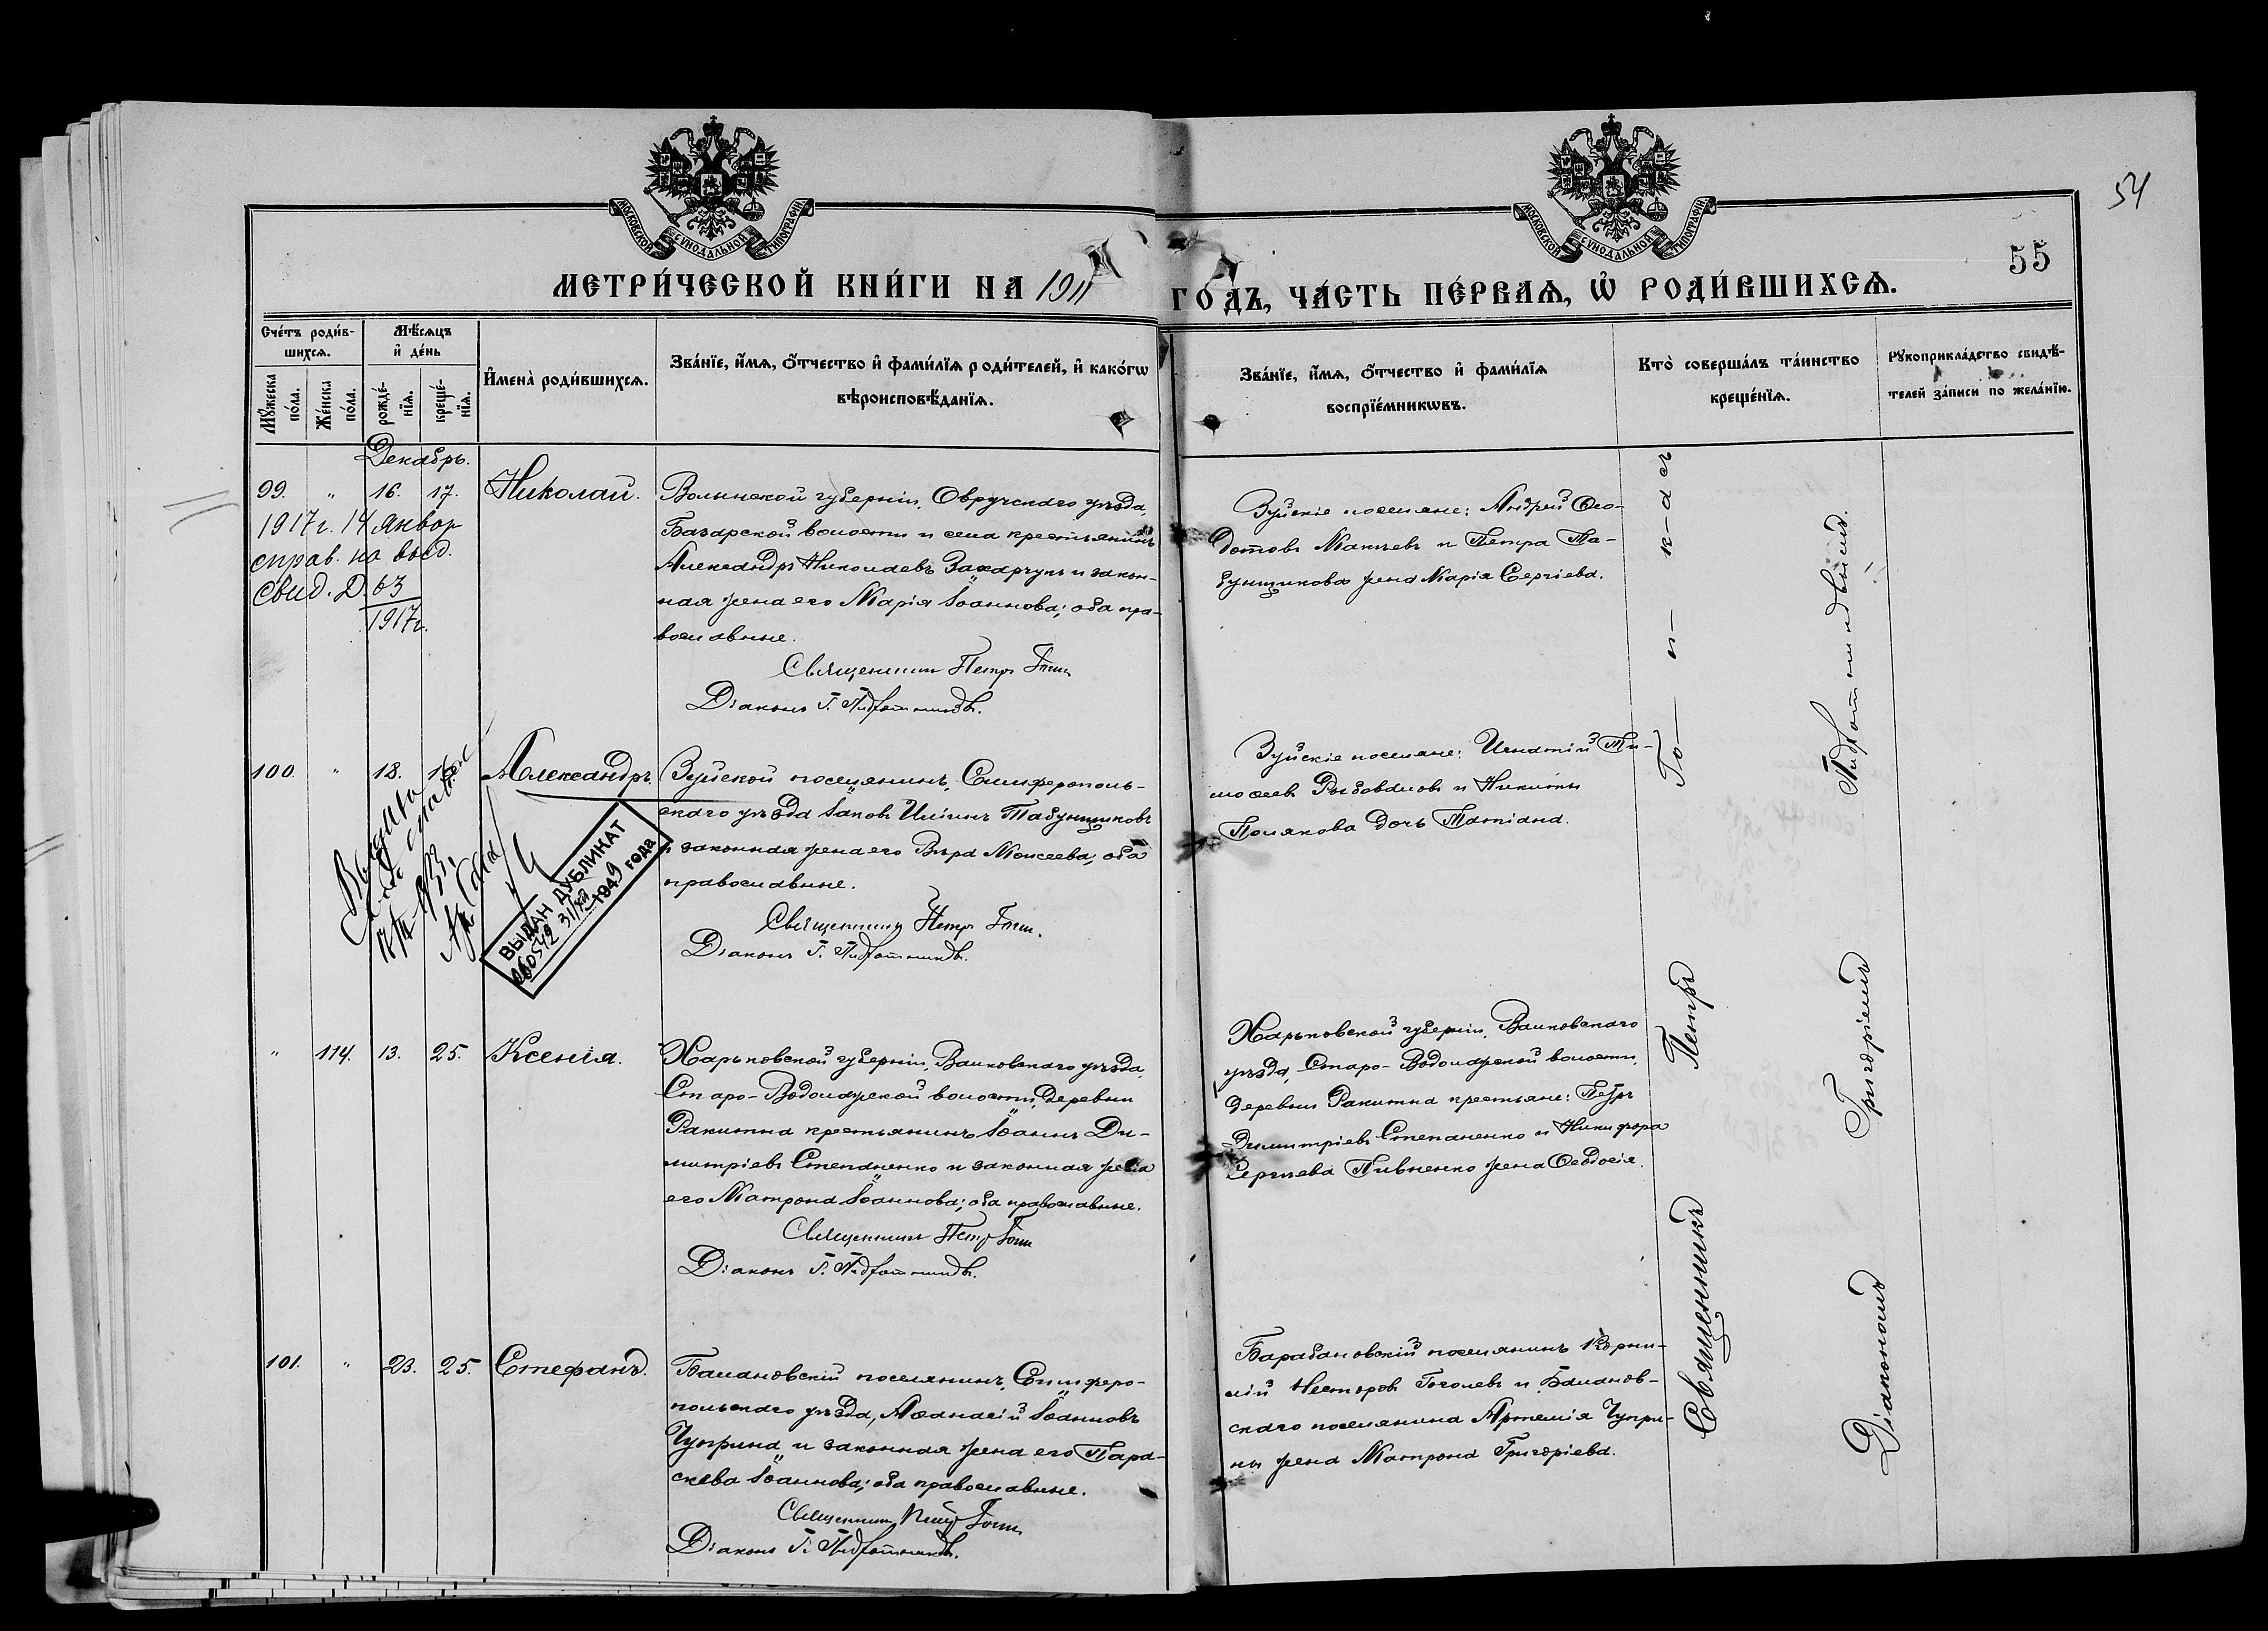 54
55
МОСКОВСКОЙ СУНОДАЛЬНОЙ ТИПОГРАФІИ
МОСКОВСКОЙ СУНОДАЛЬНОЙ ТИПОГРАФІИ
МЕТРИ́ЧЕСКОЙ КНИ́ГИ НА 1911 ГО́ДЪ, ЧА́СТЬ ПЕ́РВАѦ, Ѡ҆ РОДИ́ВШИХСѦ.
Сче́тъ роди́в-
шихсѧ.
Мꙋ́жеска по́ла.
Же́нска по́ла.
Мѣ́сѧцъ
и҆ де́нь
рожде́-
нїѧ.
креще́-
нїѧ.
И҆мена̀ роди́вшихсѧ.
Зва́нїе, и҆́мѧ, ѻ҆́тчество и҆ фами́лїѧ роди́телей, и҆ како́гѡ
вѣроисповѣ́данїѧ.
Зва́нїе, и҆́мѧ, ѻ҆́тчество и҆ фами́лїѧ
воспрїе́мникѡвъ.
Кто̀ соверша́лъ та́инство
креще́нїѧ.
Рꙋкоприкла́дство свидѣ́-
телей за́писи по жела́нїю.
Декабрь.
99. " 16. 17. Николай.
1917 г. 14 январ
справ. на выд.
свид. Д. 63
1917 г.
Волынской губерніи, Овручскаго уѣзда,
Базарской волости и села крестьянинъ
Александръ Николаевъ Захарчукъ и закон-
ная жена его Марія Іоаннова; оба пра-
вославные.
Священникъ Петръ
Діаконъ Г.
Зуйскіе поселяне: Андрей Ѳео-
дотовъ Макѣевъ и Петра Та-
бунщикова жена Марія Сергіева.
100. " 18. Александръ.
Выдана
Зуйской поселянинъ, Симферополь-
скаго уѣзда Іаковъ Иліинъ Табунщиковъ
и законная жена его Вѣра Моисеева, оба
православные.
Священникъ Петръ
Діаконъ Г.
ВЫДАН ДУБЛИКАТ
31/XII 1949 года
Зуйскіе поселяне: Игнатій Ти-
моѳеевъ и Никиты
Полякова дочь Татіана.
" 114. 13. 25. Ксенія.
Харьковской губерніи, Валковскаго уѣзда,
Старо-Водолажской волости, деревни
Ракитна крестьянинъ Іоаннъ Ди-
митріевъ Степаненко и законная жена
его Матрона Іоаннова; оба православные.
Священникъ Петръ
Діаконъ Г.
Харьковской губерніи, Валковскаго
уѣзда, Старо-Водолажской волости,
деревни Ракитна крестьяне: Петръ
Димитріевъ Степаненко и Никифора
Сергѣева Пивненко жена Ѳеодосія.
101. " 23. 25. Стефанъ.
Балановскій поселянинъ, Симферо-
польскаго уѣзда, Аѳанасій Іоанновъ
Чуприна и законная жена его Пара-
скева Іоаннова; оба православные.
Священникъ Петръ
Діаконъ Г.
Барабановскій поселянинъ Корни-
лій Несторовъ Гоголевъ и Баланов-
скаго поселянина Артемія Чупри-
ны жена Матрона Григоріева.
Священникъ Петръ
Діакономъ Григоріемъ